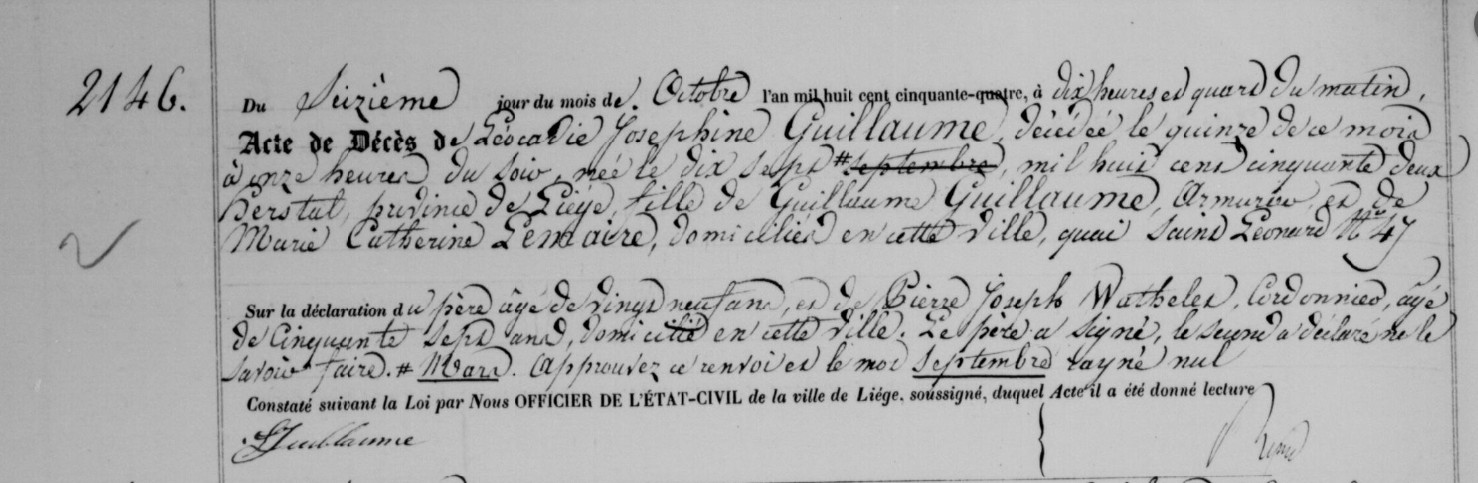 2146.
Du Seizième jour du mois de Octobre l'an mil huit cent cinquante-quatre, à dix heures et quart du matin,
Acte de Décès de Léocadie Josephine Guillaume, décédée le quinze de ce mois
à onze heures du soir, née le dix sept # septembre, mil huit cent cinquante deux
herstal, province de Liége, fille de Guillaume Guillaume, Armurier, et de
Marie Catherine Lemaire, domiciliés en cette ville, quai Saint Léonard N° 47
Sur la déclaration du père âgé de vingt neuf ans, et de Pierre Joseph Wathelet, Cordonnier, âgé
de cinquante sept ans, domicilié en cette ville. Le père a signé, le second a déclaré ne le
savoir faire. # Mars. Approuvez ce renvoi et le mot septembre rayné nul
Constaté suivant la Loi par Nous OFFICIER DE L'ÉTAT-CIVIL de la ville de Liége, soussigné, duquel Acte il a été donné lecture
Guillaume